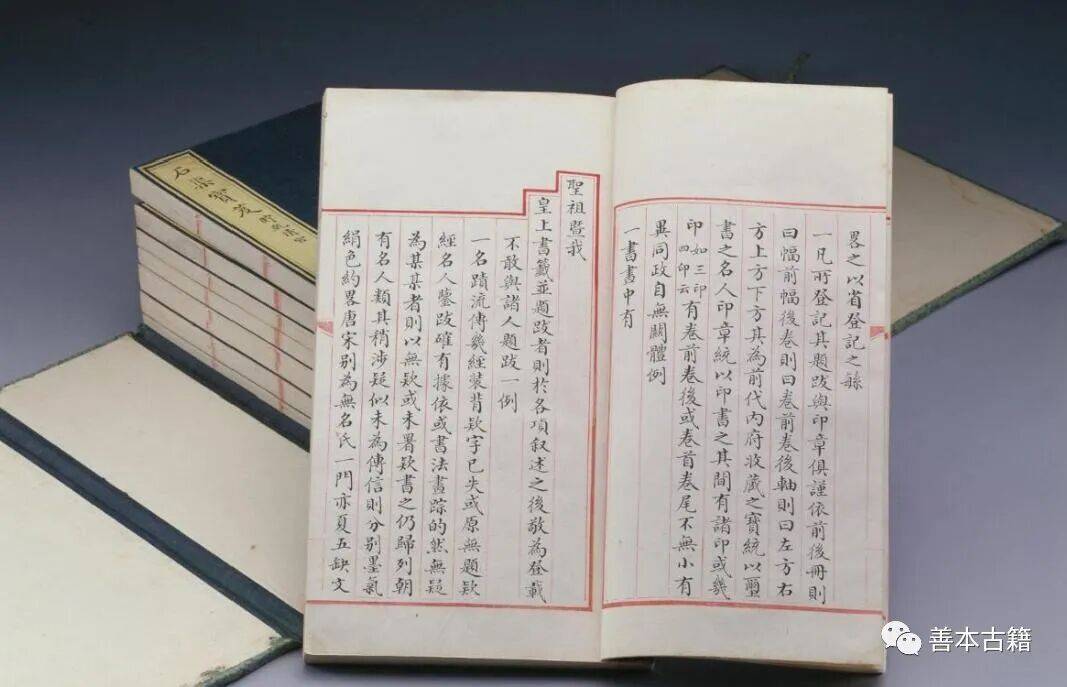 畧之以省登記之緐
一凡所登記其題跋與印章俱謹依前後冊則
曰幅前幅後卷則曰卷前卷後軸則曰左方右
方上方下方其為前代内府收藏之寶統以璽
書之名人印章統以印書之其間有諸印或幾
印如三印四印云有卷前卷後或卷首卷尾不無小有
異同政自無關體例
一書畫中有
聖祖暨我
皇上書籤並題跋者則於各項叙述之後敬為登載
不敢與諸人題跋一例
一名蹟流傳幾經裝背欵字已失或原無題欵
經名人鑒跋確有據依或書法畫踪的然無疑
為某某者則以無欵或未署欵書之仍歸列朝
有名人類其稍涉疑似未為傳信則分别墨氣
絹色約畧唐宋别為無名氏一門亦夏五缺文
石渠寶笈
善本古籍